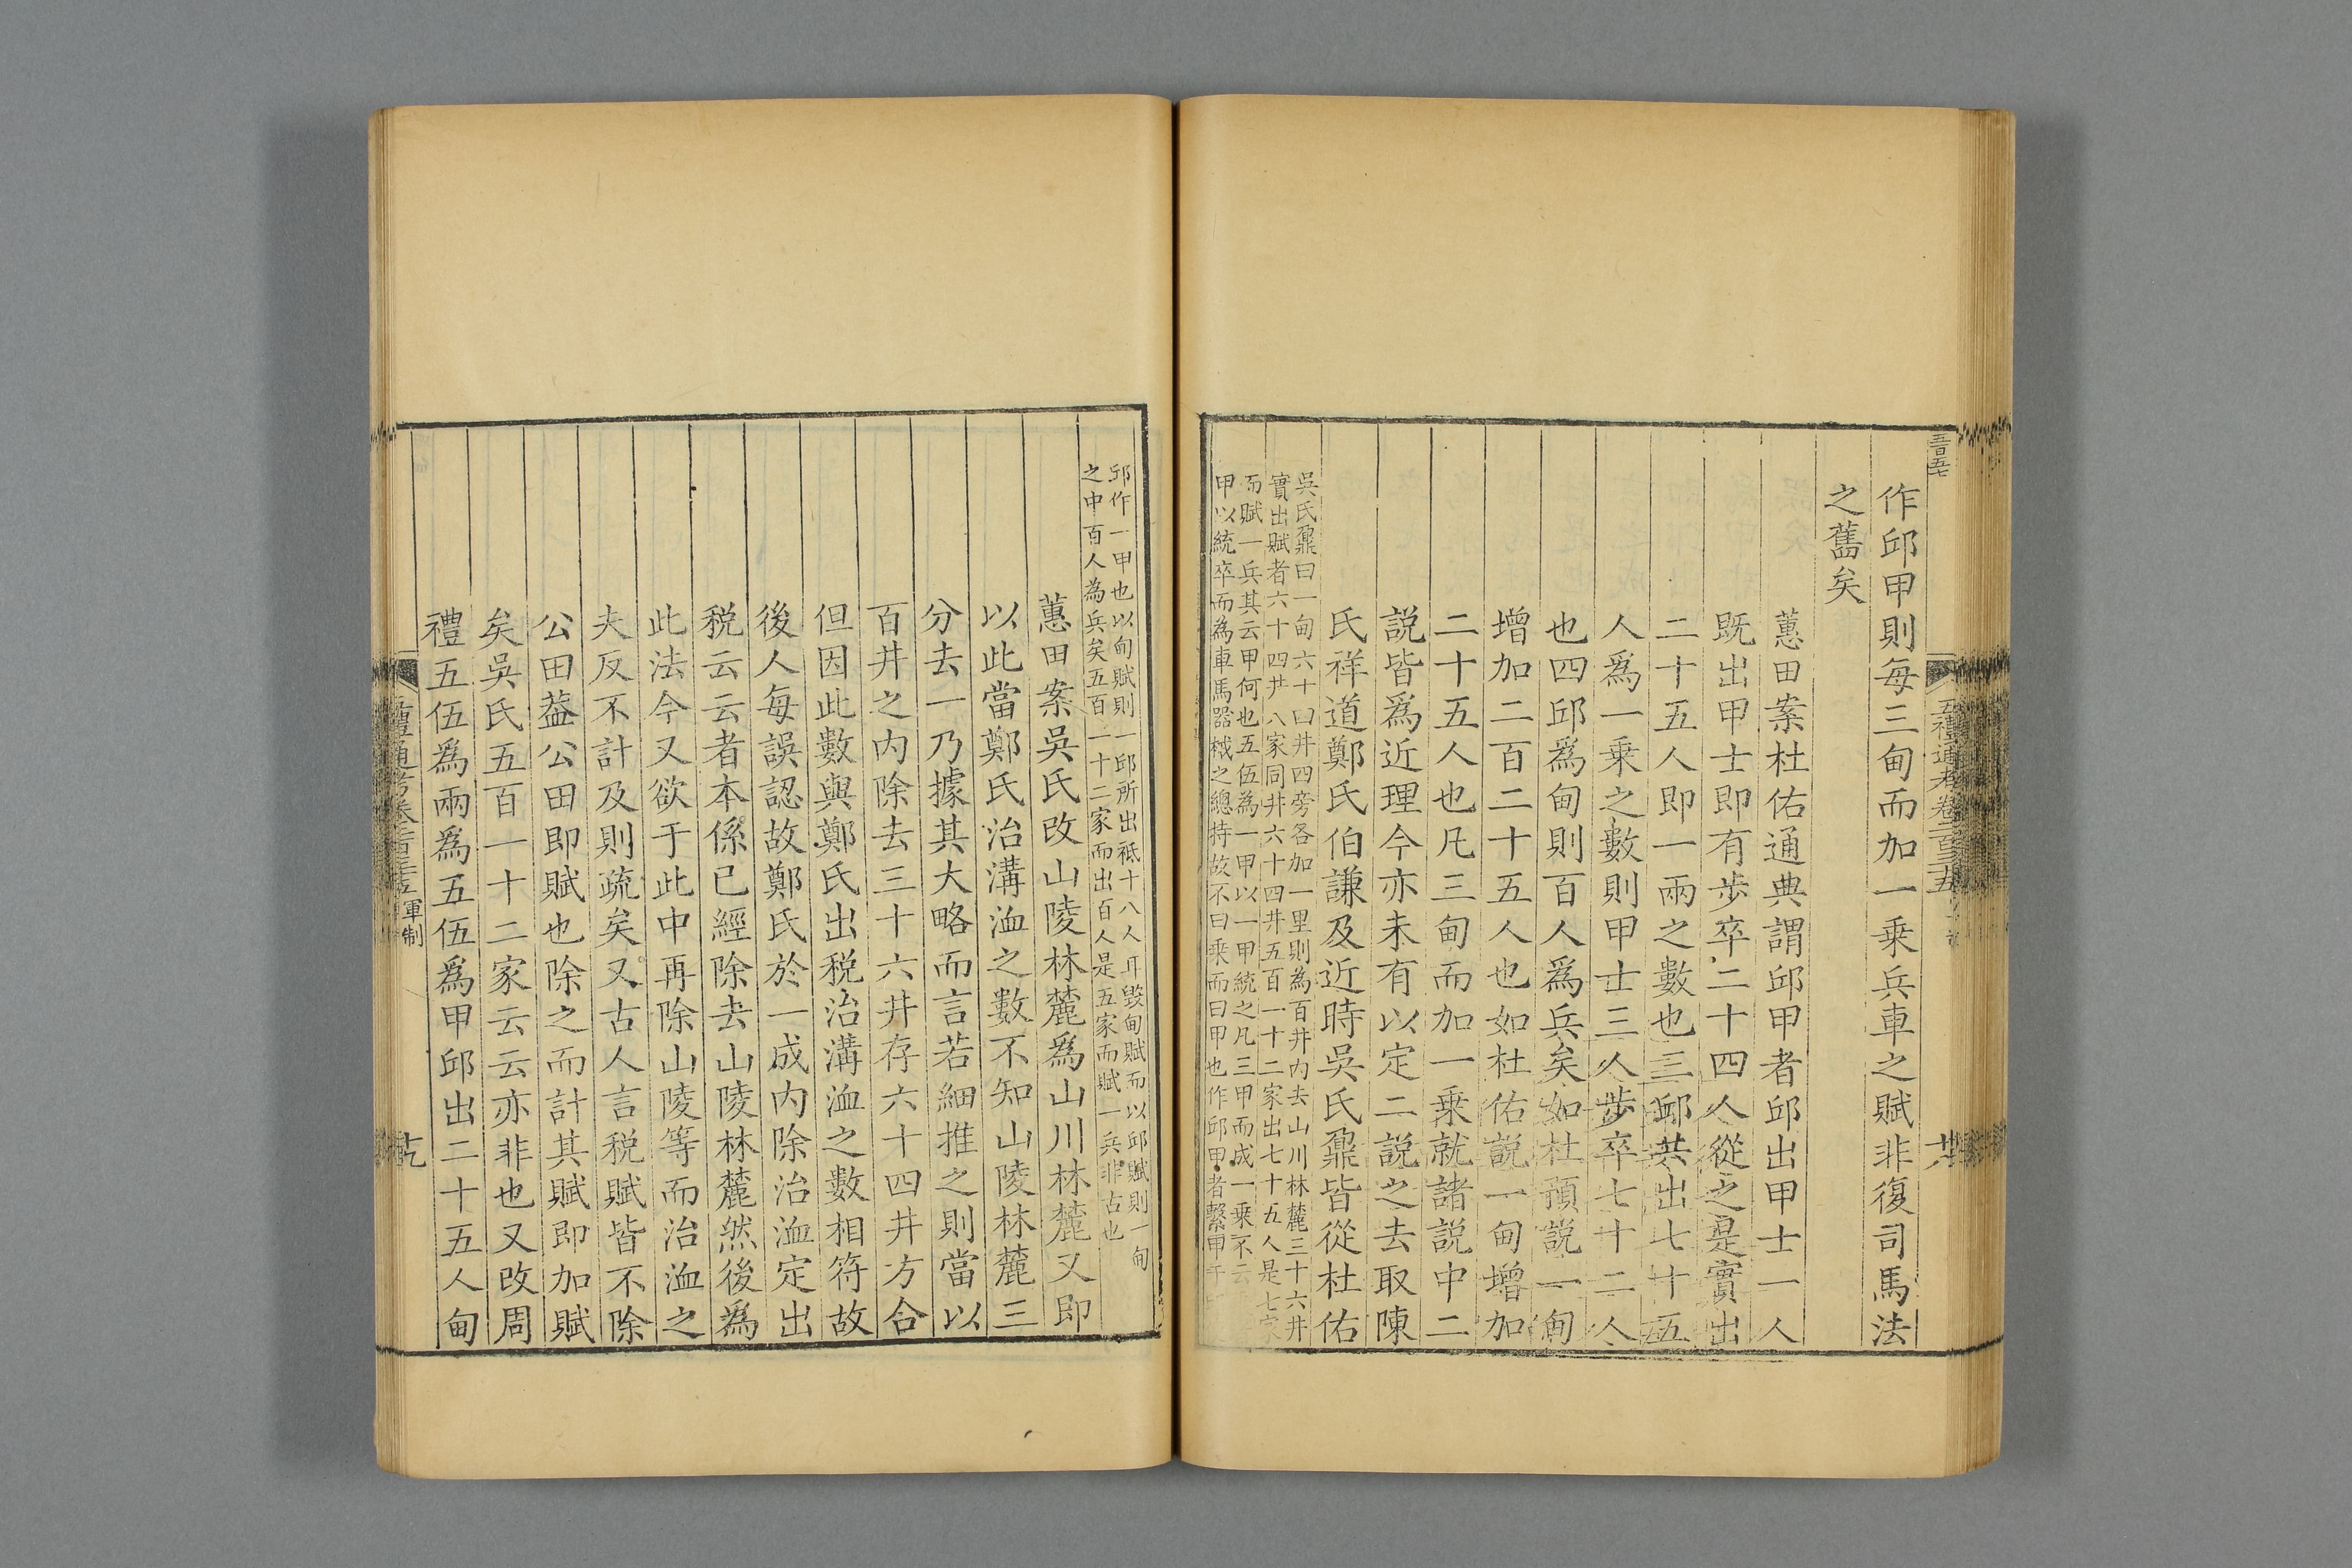 五百五七
五禮通考卷二百三十五
作邱甲則每三甸而加一乗兵車之賦非復司馬法
之舊矣
蕙田案杜佑通典謂邱甲者邱出甲士一人
既出甲士即有步卒二十四人從之是實出
二十五人即一兩之數也三邱共出七十五
人爲一乗之數則甲士三人步卒七十二人
也四邱爲甸則百人爲兵矣如杜預説一甸
增加二百二十五人也如杜佑説一甸增加
二十五人也凡三甸而加一乗就諸説中二
説皆爲近理今亦未有以定二説之去取陳
氏祥道鄭氏伯謙及近時吳氏鼐皆從杜佑
吳氏鼐曰一甸六十四井四旁各加一里則為百井内去山川林麓三十六井
實出賦者六十四井八家同井六十四井五百一十二家出七十五人是七家
而賦一兵其云甲何也五伍為一甲以一甲統之凡三甲而成一乗不云
甲以統卒而為車馬器械之總持故不曰乗而曰甲也作邱甲者繫甲于
邱作一甲也以甸賦則一邱所出祗十八人耳毀甸賦而以邱賦則一甸
之中百人為兵矣五百一十二家而出百人是五家而賦一兵非古也
蕙田案吳氏改山陵林麓爲山川林麓又即
以此當鄭氏治溝洫之數不知山陵林麓三
分去一乃據其大略而言若細推之則當以
百井之内除去三十六井存六十四井方合
但因此數與鄭氏出税治溝洫之數相符故
後人每誤認故鄭氏於一成内除治洫定出
税云云者本係已經除去山陵林麓然後爲
此法今又欲于此中再除山陵等而治洫之
夫反不計及則疏矣又古人言税賦皆不除
公田葢公田即賦也除之而計其賦即加賦
矣吳氏五百一十二家云云亦非也又改周
禮五伍爲兩爲五伍爲甲邱出二十五人甸
五禮通考卷二百三十五 軍制